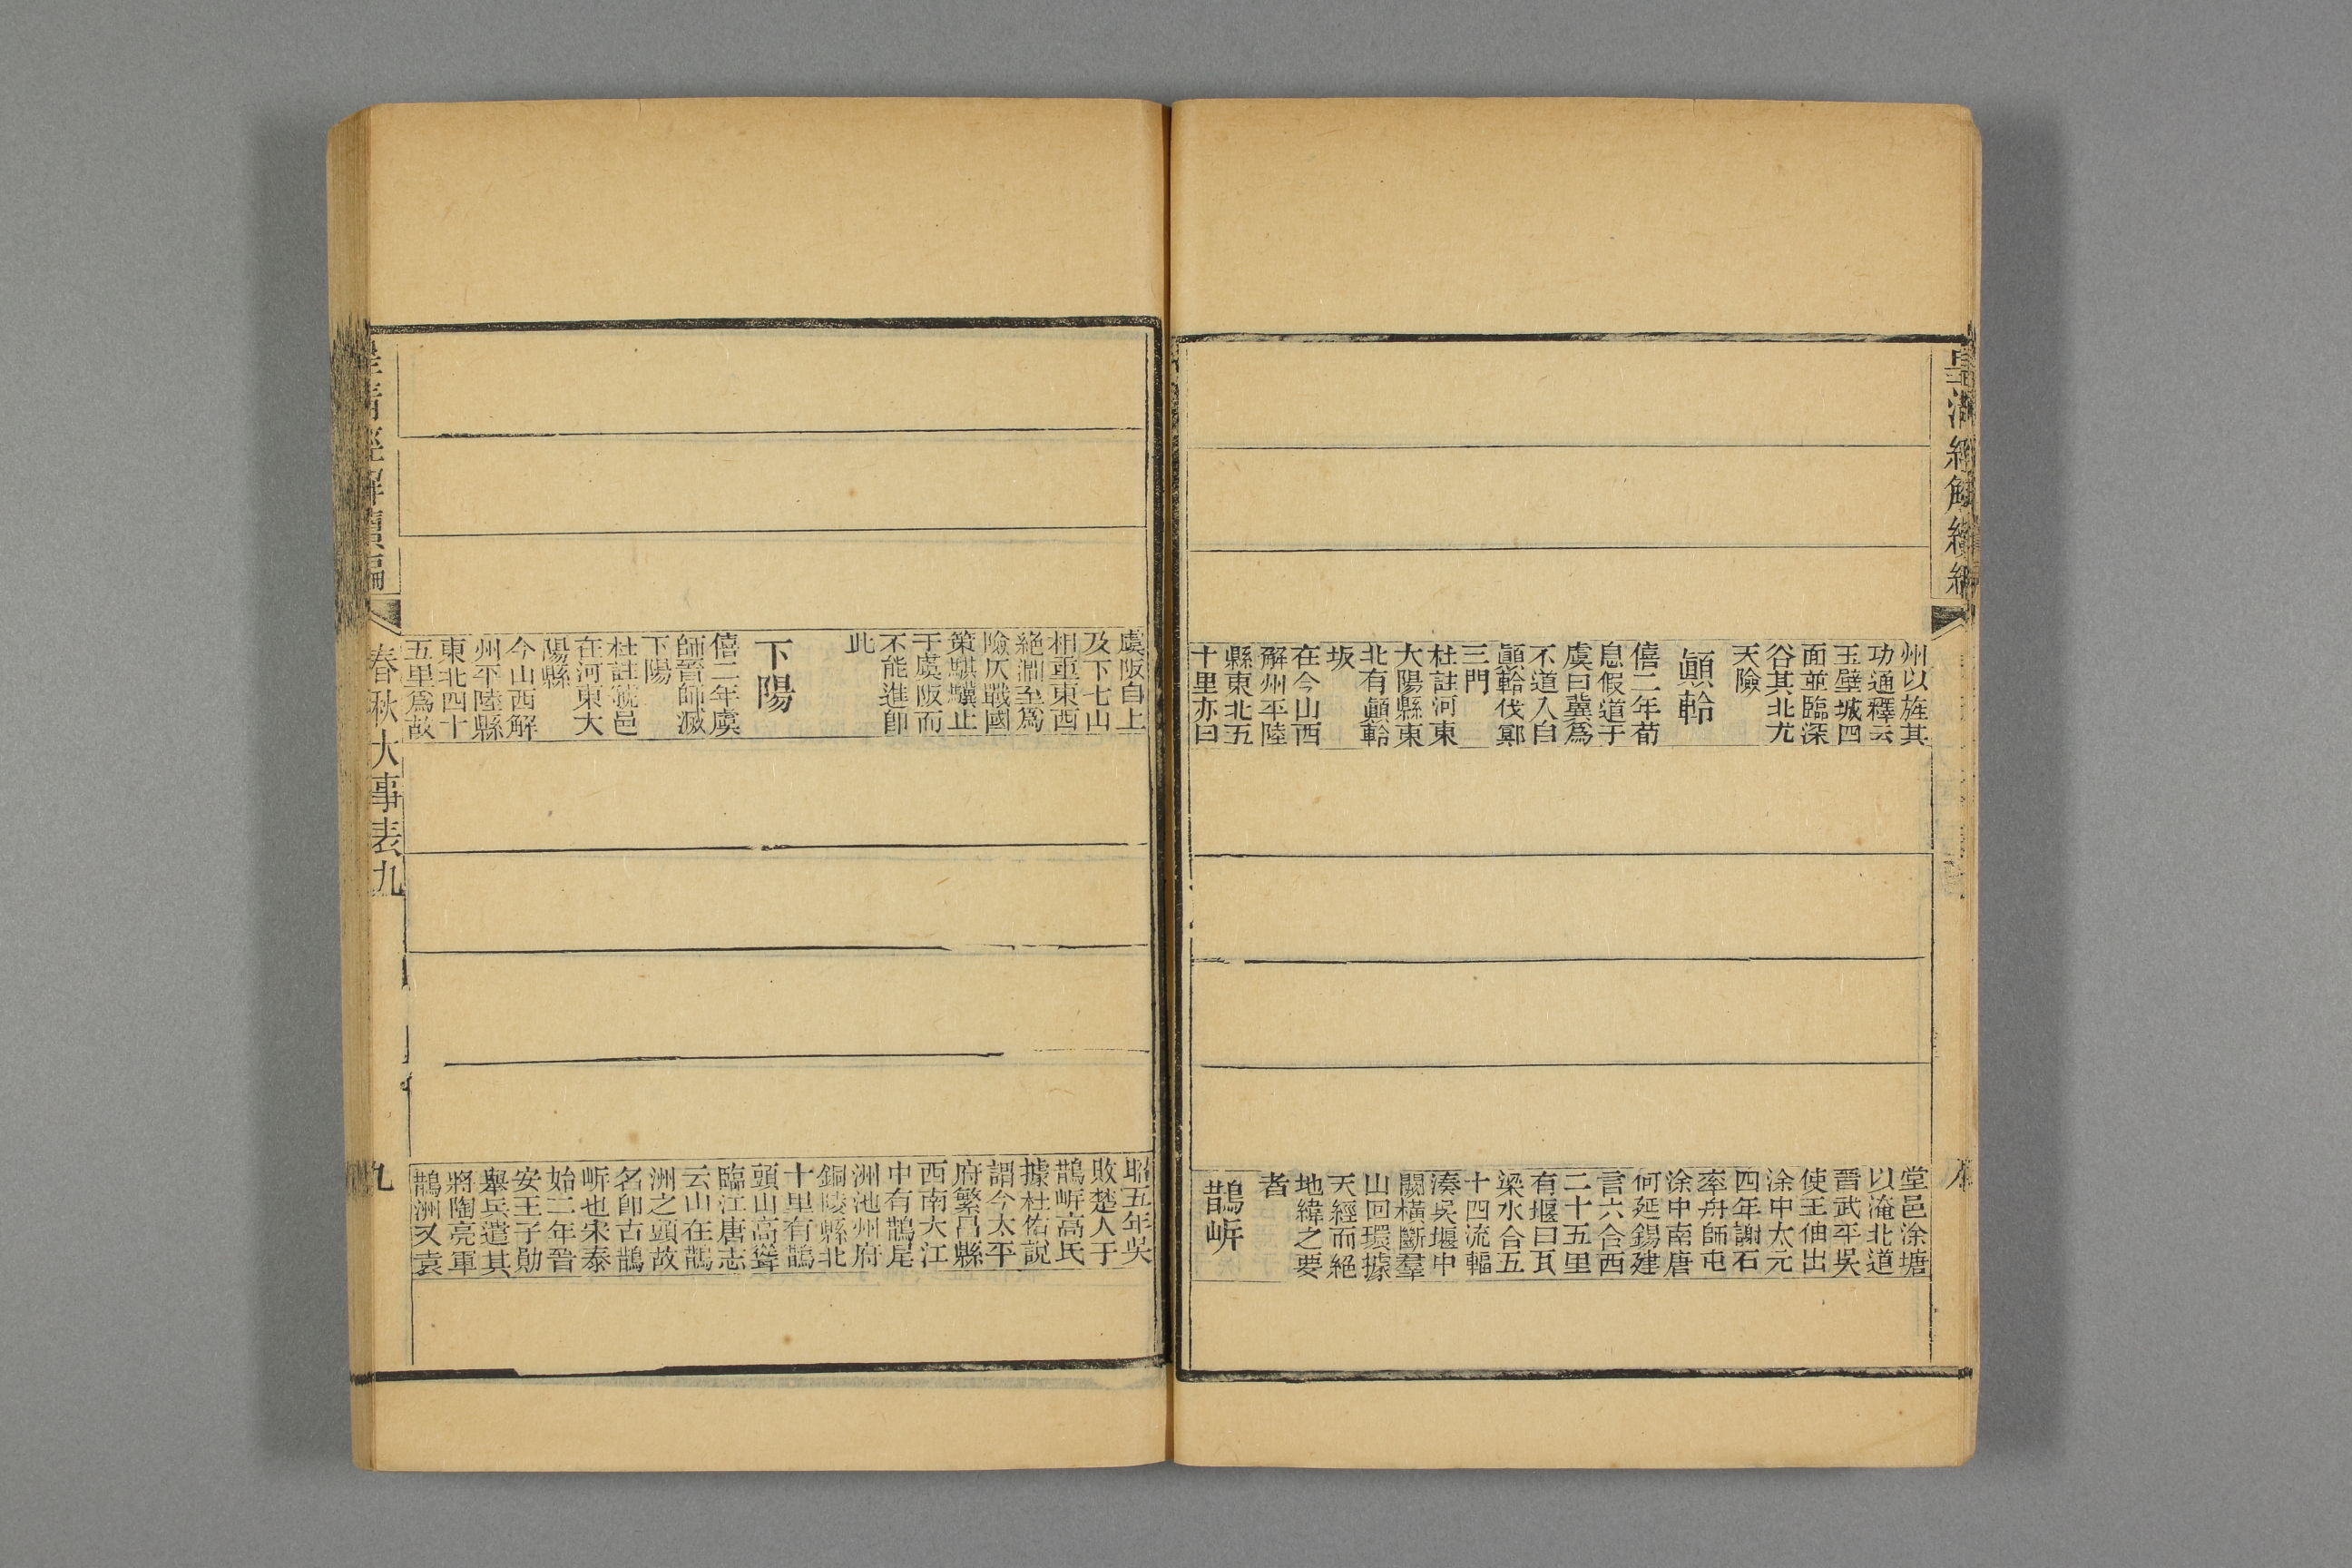 皇清經解續編
州以旌其
功通釋云
玉壁城四
面並臨深
谷其北尤
天險
顚軨
僖二年荀
息假道于
虞曰冀爲
不道入自
顚軨伐鄍
三門
杜註河東
大陽縣東
北有顚軨
坂
在今山西
解州平陸
縣東北五
十里亦曰
堂邑涂塘
以淹北道
晉武平吳
使王伷出
涂中太元
四年謝石
率舟師屯
涂中南唐
何延錫建
言六合西
二十五里
有堰曰瓦
梁水合五
十四流輻
湊吳堰中
闕橫斷羣
山回環據
天經而絕
地緯之要
者
鵲岸
虞阪自上
及下七山
相重東西
絕澗至爲
險仄戰國
策騏驥止
于虞阪而
不能進卽
此
下陽
僖二年虞
師晉師滅
下陽
杜註虢邑
在河東大
陽縣
今山西解
州平陸縣
東北四十
五里爲故
昭五年吳
敗楚人于
鵲岸高氏
據杜佑說
謂今太平
府繁昌縣
西南大江
中有鵲尾
洲池州府
銅陵縣北
十里有鵲
頭山高聳
臨江唐志
云山在鵲
洲之頭故
名卽古鵲
岸也宋泰
始二年晉
安王子勛
舉兵遣其
將陶亮軍
鵲洲又袁
皇清經解續編
春秋大事表九
九